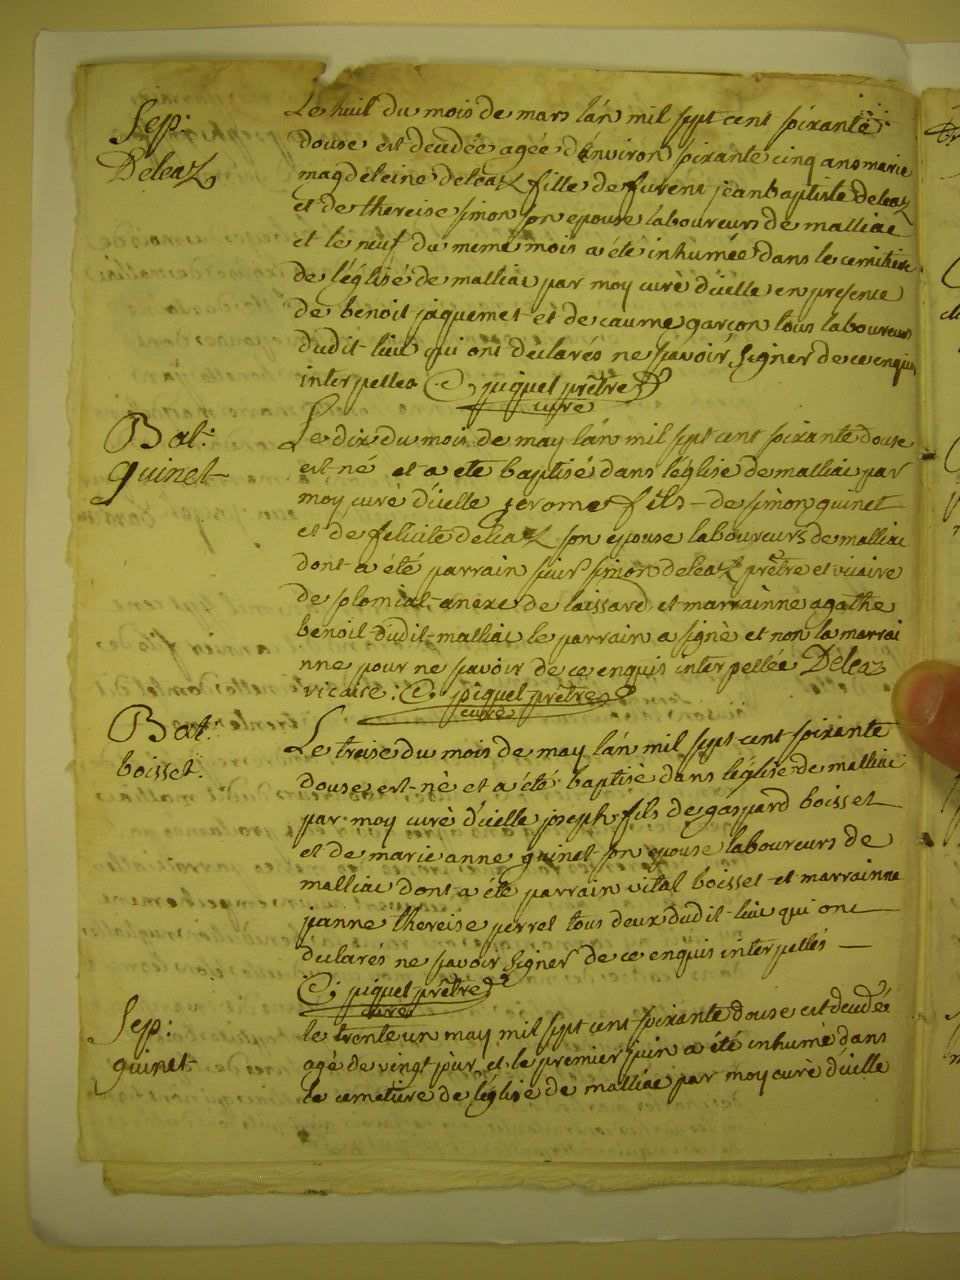 Sep:
Deleaz
Le huit du mois de mars l'an mil sept cent soixante
douse est decedée agée d'environ soixante cinq ans marie
magdeleine deleaz fille de furent jean baptiste deleaz
et de thereise simon son epouse laboureurs de malliac
et le neuf du meme mois a été inhumée dans le cemitiere
de l'église de malliac par moy curè d'icelle en presence
de benoit jaquemet et de garçon tous laboureurs
dudit lieu qui ont déclarés ne sçavoir signer de ce enquis
interpelles C; piquet prêtre
curé
Bat:
quinet
Le dix du mois de may l'an mil sept cent soixante douse
est né et a ete baptisé dans l'église de malliac par
moy curè d'icelle jerome fils de simon quinet
et de félicité deleaz son epouse laboureurs de malliac
dont a été parrain sieur simon deleaz prêtre et vicaire
de anexe de laissard et marrainne agathe
benoit dudit malliac le parrain a signè et non la marrai
nne pour ne sçavoir de ce enquis interpellée Deleaz
vicaire: C; piquet prêtre
curé
Bat:
boisset:
Le treise du mois de may l'an mil sept cent soixante
douse est nè et a été baptisè dans l'église de malliac
par moy curè d'icelle joseph fils de gaspard boisset
et de marie anne quinet son epouse laboureurs de
malliac dont a été parrain vital boisset et marrainne
janne thereise perret tous deux dudit lieu qui ont
declarés ne sçavoir signer de ce enquis interpellés
C; piquet prêtre
curé
Sep:
quinet
le trente un may mil sept cent soixante douse est decedé
agé de vingt jour et le premier juin a été inhumè dans
le cemetiere de l'église de malliac par moy curè d'icelle